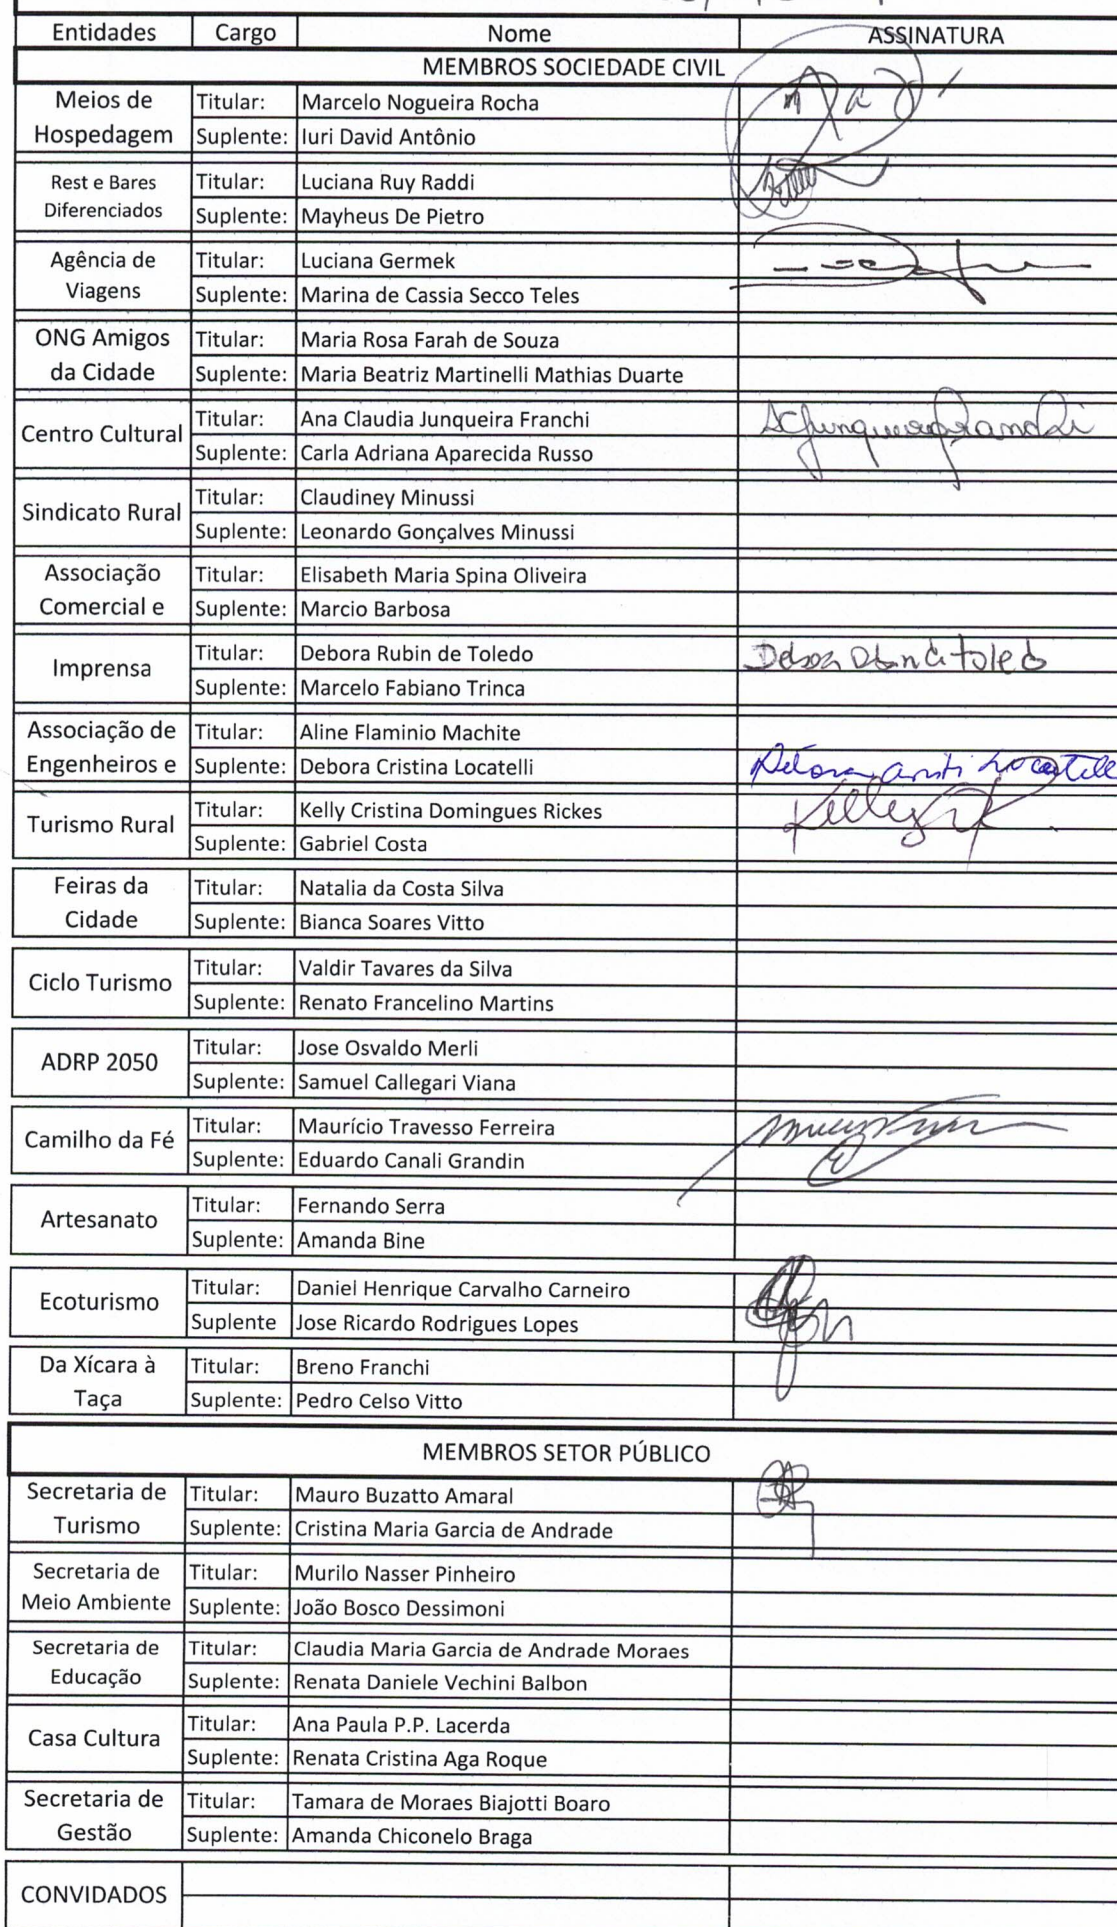 Entidades Cargo Nome ASSINATURA
MEMBROS SOCIEDADE CIVIL
Meios de Hospedagem
Titular: Marcelo Nogueira Rocha
Suplente: Iuri David Antônio
Rest e Bares Diferenciados
Titular: Luciana Ruy Raddi
Suplente: Mayheus De Pietro
Agência de Viagens
Titular: Luciana Germek
Suplente: Marina de Cassia Secco Teles
ONG Amigos da Cidade
Titular: Maria Rosa Farah de Souza
Suplente: Maria Beatriz Martinelli Mathias Duarte
Centro Cultural
Titular: Ana Claudia Junqueira Franchi
Suplente: Carla Adriana Aparecida Russo
Sindicato Rural
Titular: Claudiney Minussi
Suplente: Leonardo Gonçalves Minussi
Associação Comercial e
Titular: Elisabeth Maria Spina Oliveira
Suplente: Marcio Barbosa
Imprensa
Titular: Debora Rubin de Toledo
Suplente: Marcelo Fabiano Trinca
Associação de Engenheiros e
Titular: Aline Flaminio Machite
Suplente: Debora Cristina Locatelli
Turismo Rural
Titular: Kelly Cristina Domingues Rickes Kelly
Suplente: Gabriel Costa
Feiras da Cidade
Titular: Natalia da Costa Silva
Suplente: Bianca Soares Vitto
Ciclo Turismo
Titular: Valdir Tavares da Silva
Suplente: Renato Francelino Martins
ADRP 2050
Titular: Jose Osvaldo Merli
Suplente: Samuel Callegari Viana
Camilho da Fé
Titular: Maurício Travesso Ferreira
Suplente: Eduardo Canali Grandin
Artesanato
Titular: Fernando Serra
Suplente: Amanda Bine
Ecoturismo
Titular: Daniel Henrique Carvalho Carneiro
Suplente Jose Ricardo Rodrigues Lopes
Da Xícara à Taça
Titular: Breno Franchi
Suplente: Pedro Celso Vitto
MEMBROS SETOR PÚBLICO
Secretaria de Turismo
Titular: Mauro Buzatto Amaral
Suplente: Cristina Maria Garcia de Andrade
Secretaria de Meio Ambiente
Titular: Murilo Nasser Pinheiro
Suplente: João Bosco Dessimoni
Secretaria de Educação
Titular: Claudia Maria Garcia de Andrade Moraes
Suplente: Renata Daniele Vechini Balbon
Casa Cultura
Titular: Ana Paula P.P. Lacerda
Suplente: Renata Cristina Aga Roque
Secretaria de Gestão
Titular: Tamara de Moraes Biajotti Boaro
Suplente: Amanda Chiconelo Braga
CONVIDADOS